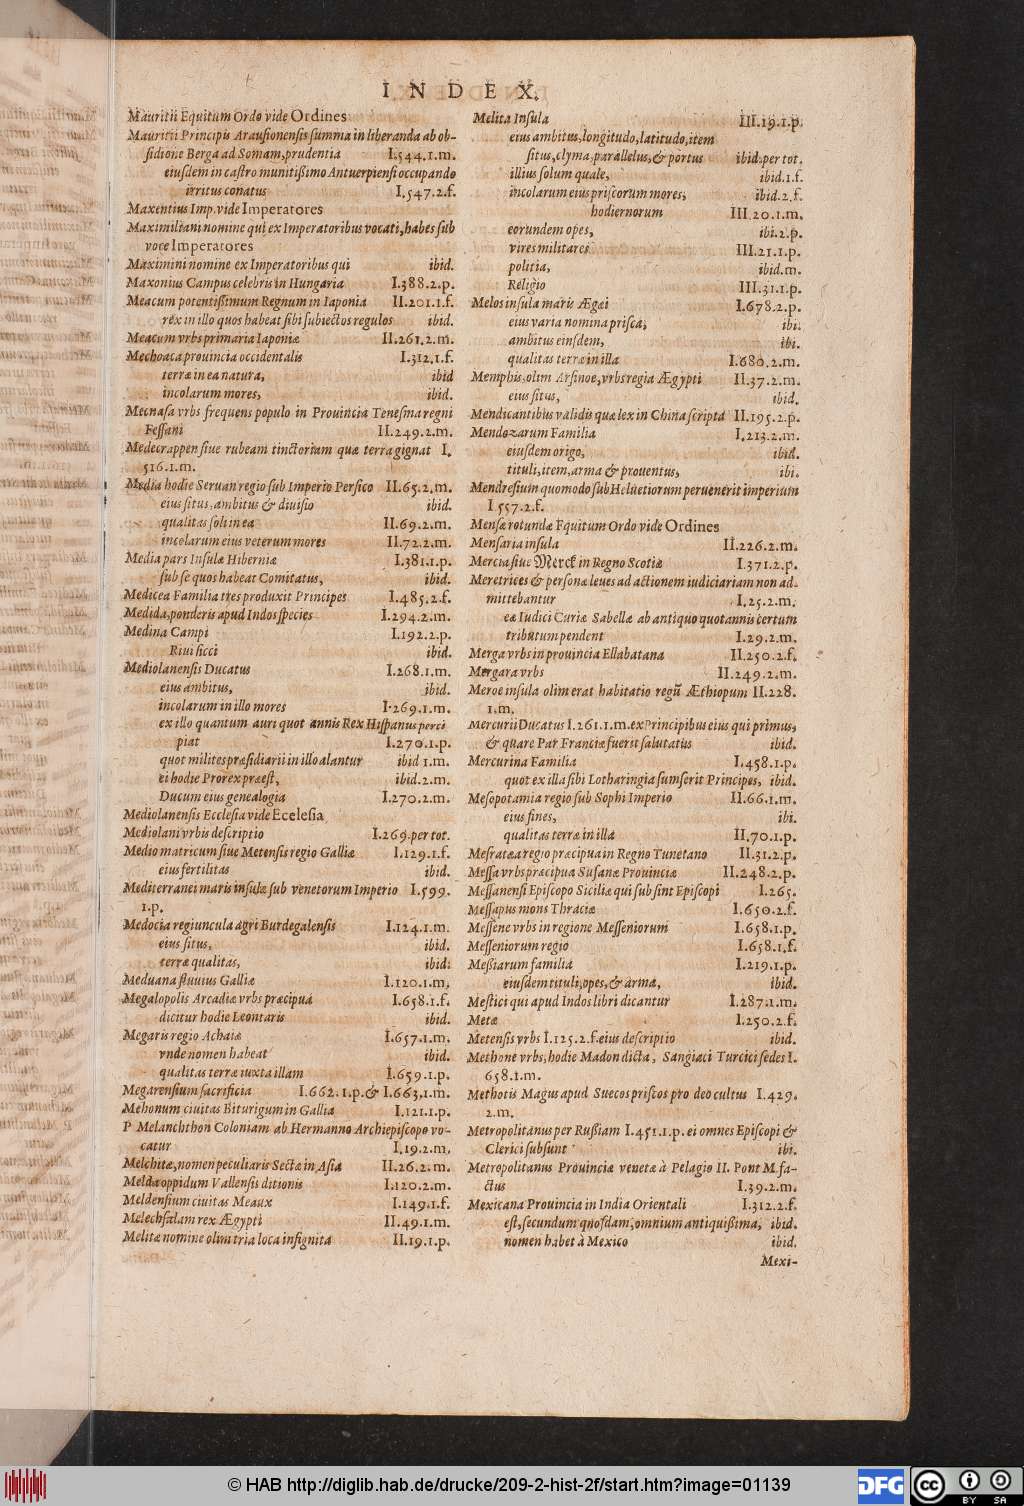 INDEX.
Mauritii Equitum Ordo vide Ordines
Mauritii Principis Arausionensis summa in liberanda ab ob-
sidione Berga ad Somam, prudentia I.544.1.m.
eiusdem in castro munitißimo Antuerpiensi occupando
irritus conatus I.547.2.f.
Maxentius Imp. vide Imperatores
Maximiliani nomine qui ex Imperatoribus vocati, habes sub
voce Imperatores
Maximini nomine ex Imperatoribus qui ibid.
Maxonius Campus celebris in Hungaria I.388.2.p.
Meacum potentißimum Regnum in Iaponia II.201.1.f.
rex in illo quos habeat sibi subiectos regulos ibid.
Meacum vrbs primaria Iaponiæ II.261.2.m.
Mechoaca prouincia occidentalis I.312.1.f.
terræ in ea natura, ibid
incolarum mores, ibid.
Mecnasa vrbs frequens populo in Prouincia Tenesina regni
Fessani II.249.2.m.
Medecrappen siue rubeam tinctoriam quæ terra gignat I.
516.1.m.
Media hodie Seruan regio sub Imperio Persico II.65.2.m.
eius situs, ambitus & diuisio ibid.
qualitas soli in ea II.69.2.m.
incolarum eius veterum mores II.72.2.m.
Media pars Insulæ Hiberniæ I.381.1.p.
sub se quos habeat Comitatus, ibid.
Medicea Familia tres produxit Principes I.485.2.f.
Medida, ponderis apud Indos species I.294.2.m.
Medina Campi I.192.2.p.
Riui sicci ibid.
Mediolanensis Ducatus I.268.1.m.
eius ambitus, ibid.
incolarum in illo mores I.269.1.m.
ex illo quantum auri quot annis Rex Hispanus perci
piat I.270.1.p.
quot milites præsidiarii in illo alantur ibid 1.m.
ei hodie Prorex præest, ibid.2.m.
Ducum eius genealogia I.270.2.m.
Mediolanensis Ecclesia vide Ecclesia
Mediolani vrbis descriptio I.269.per tot.
Medio matricum siue Metensis regio Galliæ I.129.1.f.
eius fertilitas ibid.
Mediterranei maris insulæ sub venetorum Imperio I.599.
1.p.
Medocia regiuncula agri Burdegalensis I.124.1.m.
eius situs, ibid.
terræ qualitas, ibid:
Meduana fluuius Galliæ I.120.1.m.
Megalopolis Arcadiæ vrbs præcipua I.658.1.f.
dicitur hodie Leontaris ibid.
Megaris regio Achaiæ I.657.1.m.
vnde nomen habeat ibid.
qualitas terræ iuxta illam I.659.1.p.
Megarensium sacrificia I.662.1.p.& I.663.1.m.
Mehonum ciuitas Biturigum in Gallia I.121.1.p.
P Melanchthon Coloniam ab Hermanno Archiepiscopo vo-
catur I.19.2.m.
Melchitæ, nomen peculiaris Sectæ in Asia II.26.2.m.
Melda oppidum Vallensis ditionis I.120.2.m.
Meldensium ciuitas Meaux I.149.1.f.
Melechsalam rex Ægypti II.49.1.m.
Melitæ nomine olim tria loca insignita II.19.1.p.
Melita Insula III.19.1.p.
eius ambitus, longitudo, latitudo, item
situs, clyma, parallelus, & portus ibid.per tot.
illius solum quale, ibid.1.f.
incolarum eius priscorum mores, ibid.2.f.
hodiernorum III.20.1.m.
eorundem opes, ibi.2.p.
vires militares III.21.1.p.
politia, ibid.m.
Religio III.31.1.p.
Melos insula maris Ægæi I.678.2.p.
eius varia nomina prisca, ibi.
ambitus eiusdem, ibi.
qualitas terræ in illa I.680.2.m.
Memphis, olim Arsinoe, vrbs regia Ægypti II.37.2.m.
eius situs, ibid.
Mendicantibus validis quæ lex in China scripta II.195.2.p.
Mendozarum Familia I.213.2.m.
eiusdem origo, ibid.
tituli, item, arma & prouentus, ibi.
Mendresium quomodo sub Heluetiorum peruenerit imperium
I 557.2.f.
Mensæ rotundæ Equitum Ordo vide Ordines
Mensaria insula II.226.2.m.
Mercia siue Merck in Regno Scotiæ I.371.2.p.
Meretrices & personæ leues ad actionem iudiciariam non ad-
mittebantur I.25.2.m.
eæ Iudici Curiæ Sabellæ ab antiquo quotannis certum
tributum pendent I.29.2.m.
Merga vrbs in prouincia Ellabatana II.250.2.f.
Mergara vrbs II.249.2.m.
Meroe insula olim erat habitatio regũ Æthiopum II.228.
1.m.
Mercurii Ducatus I.261.1.m.ex Principibus eius qui primus,
& quare Par Franciæ fuerit salutatus ibid.
Mercurina Familia I.458.1.p.
quot ex illa sibi Lotharingia sumserit Principes, ibid.
Mesopotamia regio sub Sophi Imperio II.66.1.m.
eius fines, ibi.
qualitas terræ in illa II.70.1.p.
Mesrataa regio præcipua in Regno Tunetano II.31.2.p.
Messa vrbs præcipua Susanæ Prouinciæ II.248.2.p.
Messanensi Episcopo Siciliæ qui sub sint Episcopi I.265.
Messapus mons Thraciæ I.650.2.f.
Messene vrbs in regione Messeniorum I.658.1.p.
Messeniorum regio I.658.1.f.
Meßiarum familia I.219.1.p.
eiusdem tituli, opes, & arma, ibid.
Mestici qui apud Indos libri dicantur I.287.1.m.
Metæ I.250.2.f.
Metensis vrbs I.125.2.f.eius descriptio ibid.
Methone vrbs, hodie Madon dicta, Sangiaci Turcici sedes I.
658.1.m.
Methotis Magus apud Suecos priscos pro deo cultus I.429.
2.m.
Metropolitanus per Rußiam I.451.1.p.ei omnes Episcopi &
Clerici subsunt ibi.
Metropolitanus Prouinciæ venetæ à Pelagio II. Pont M.fa-
ctus I.39.2.m.
Mexicana Prouincia in India Orientali I.312.2.f.
est, secundum quosdam, omnium antiquißima, ibid.
nomen habet à Mexico ibid.
Mexi-
© HAB http://diglib.hab.de/drucke/209-2-hist-2f/start.htm?image=01139
DFG
cc
BY SA